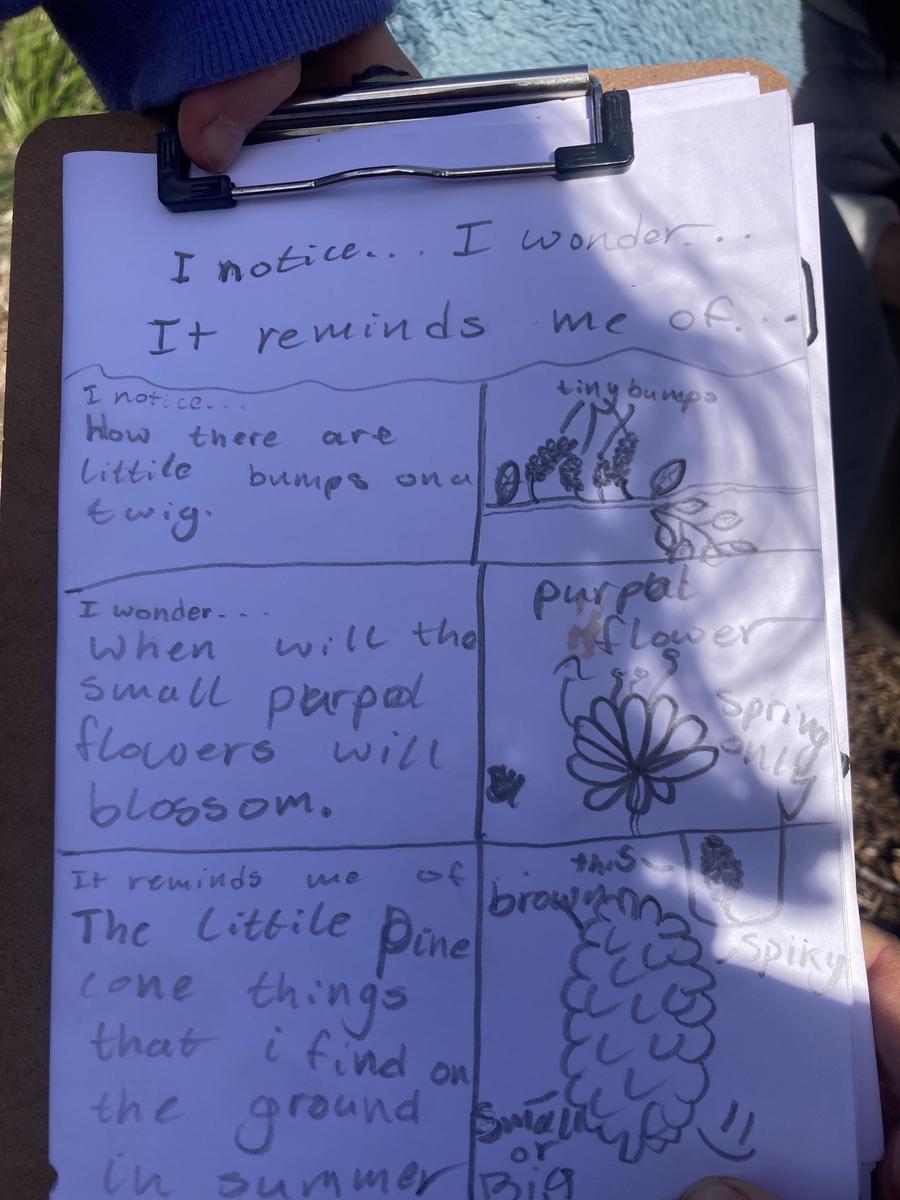 I notice... I wonder...
It reminds me of...
I notice...
How there are
littile bumps on a
twig.
tiny bumps
I wonder...
When will the
small purpal
flowers will
blossom.
purpal
flower
spring
only
It reminds me of
The littile Pine
cone things
that i find on
the ground
in summer
this
brown
spiky
small
or
Big